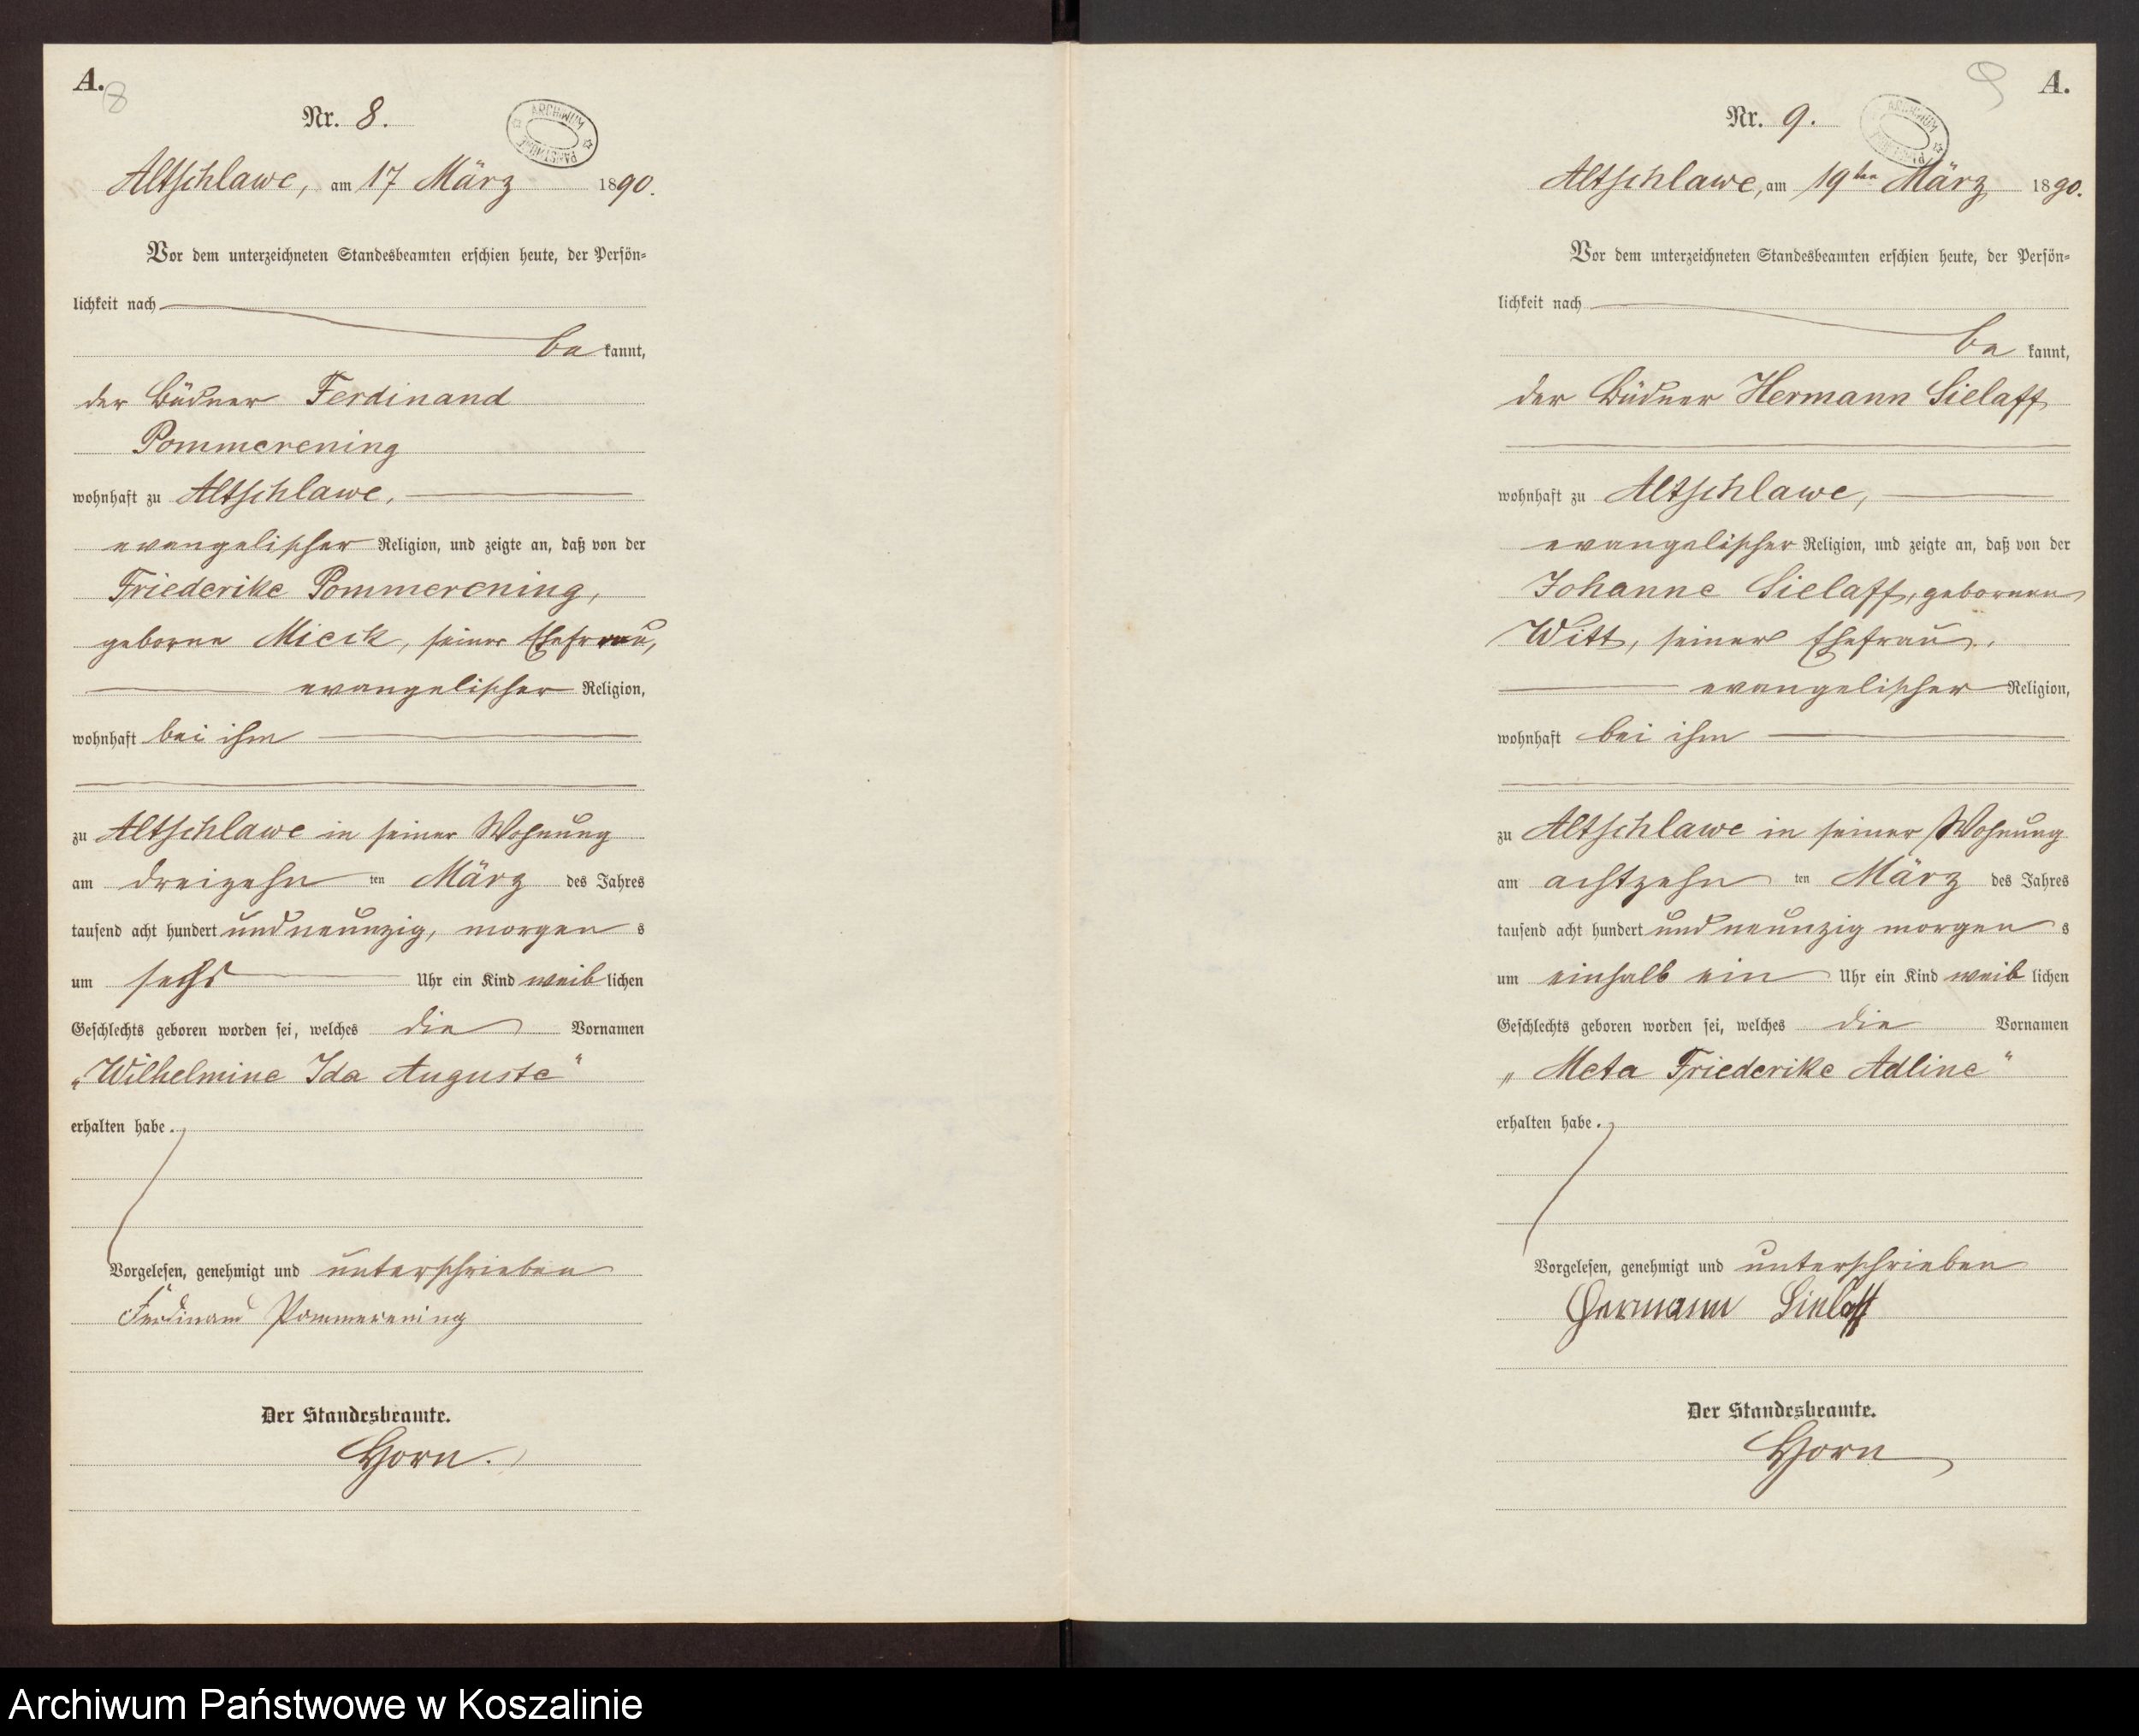 A.
8
Nr. 8.
ARCHIWUM PAŃSTWOWE
Altschlawe, am 17 März 1890.
Vor dem unterzeichneten Standesbeamten erschien heute, der Persön=
lichkeit nach
be kannt,
der Büdner Ferdinand
Pommerening
wohnhaft zu Altschlawe,
evangelischer Religion, und zeigte an, daß von der
Friederike Pommerening,
geborne Mieck, seiner Ehefrau,
evangelischer Religion,
wohnhaft bei ihm
zu Altschlawe in seiner Wohnung
am dreizehn ten März des Jahres
tausend acht hundert und neunzig, morgen s
um sechs Uhr ein Kind weib lichen
Geschlechts geboren worden sei, welches die Vornamen
„Wilhelmine Ida Auguste"
erhalten habe.
Vorgelesen, genehmigt und unterschrieben
Ferdinand Pommerening
Der Standesbeamte.
Horn.
9
A.
Nr. 9.
ARCHIWUM
Altschlawe, am 19ten März 1890.
Vor dem unterzeichneten Standesbeamten erschien heute, der Persön=
lichkeit nach
be kannt,
der Büdner Hermann Sielaff
wohnhaft zu Altschlawe,
evangelischer Religion, und zeigte an, daß von der
Johanne Sielaff, gebornen
Witt, seiner Ehefrau,
evangelischer Religion,
wohnhaft bei ihm
zu Altschlawe in seiner Wohnung
am achtzehn ten März des Jahres
tausend acht hundert und neunzig morgen s
um einhalb ein Uhr ein Kind weib lichen
Geschlechts geboren worden sei, welches die Vornamen
„Meta Friederike Adline"
erhalten habe.
Vorgelesen, genehmigt und unterschrieben
Hermann Sielaff
Der Standesbeamte.
Horn
Archiwum Państwowe w Koszalinie